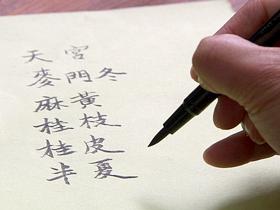 天宮
麥門冬
麻黃
桂枝
桂皮
半夏